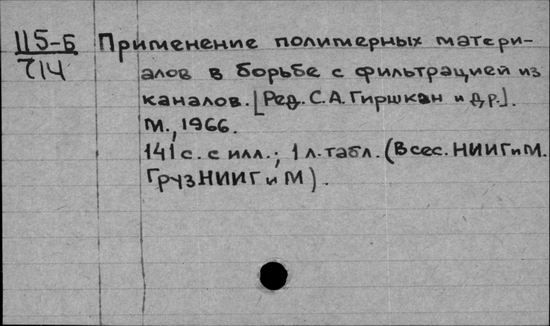 115-Б
714
Применение полимерных матери-
алов в борьбе с фильтрацией из
каналов. [Ред. С.А. Гиршкан и др.].
М., 1966.
141 с. с илл.; 1 л. табл. (Всес. НИИГиМ.
ГрузНИИГиМ).